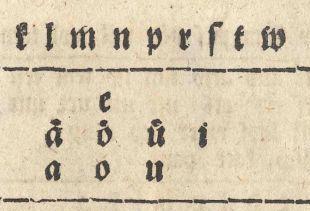 k l m n p r ſ t w
e
å ö ů i
a o u